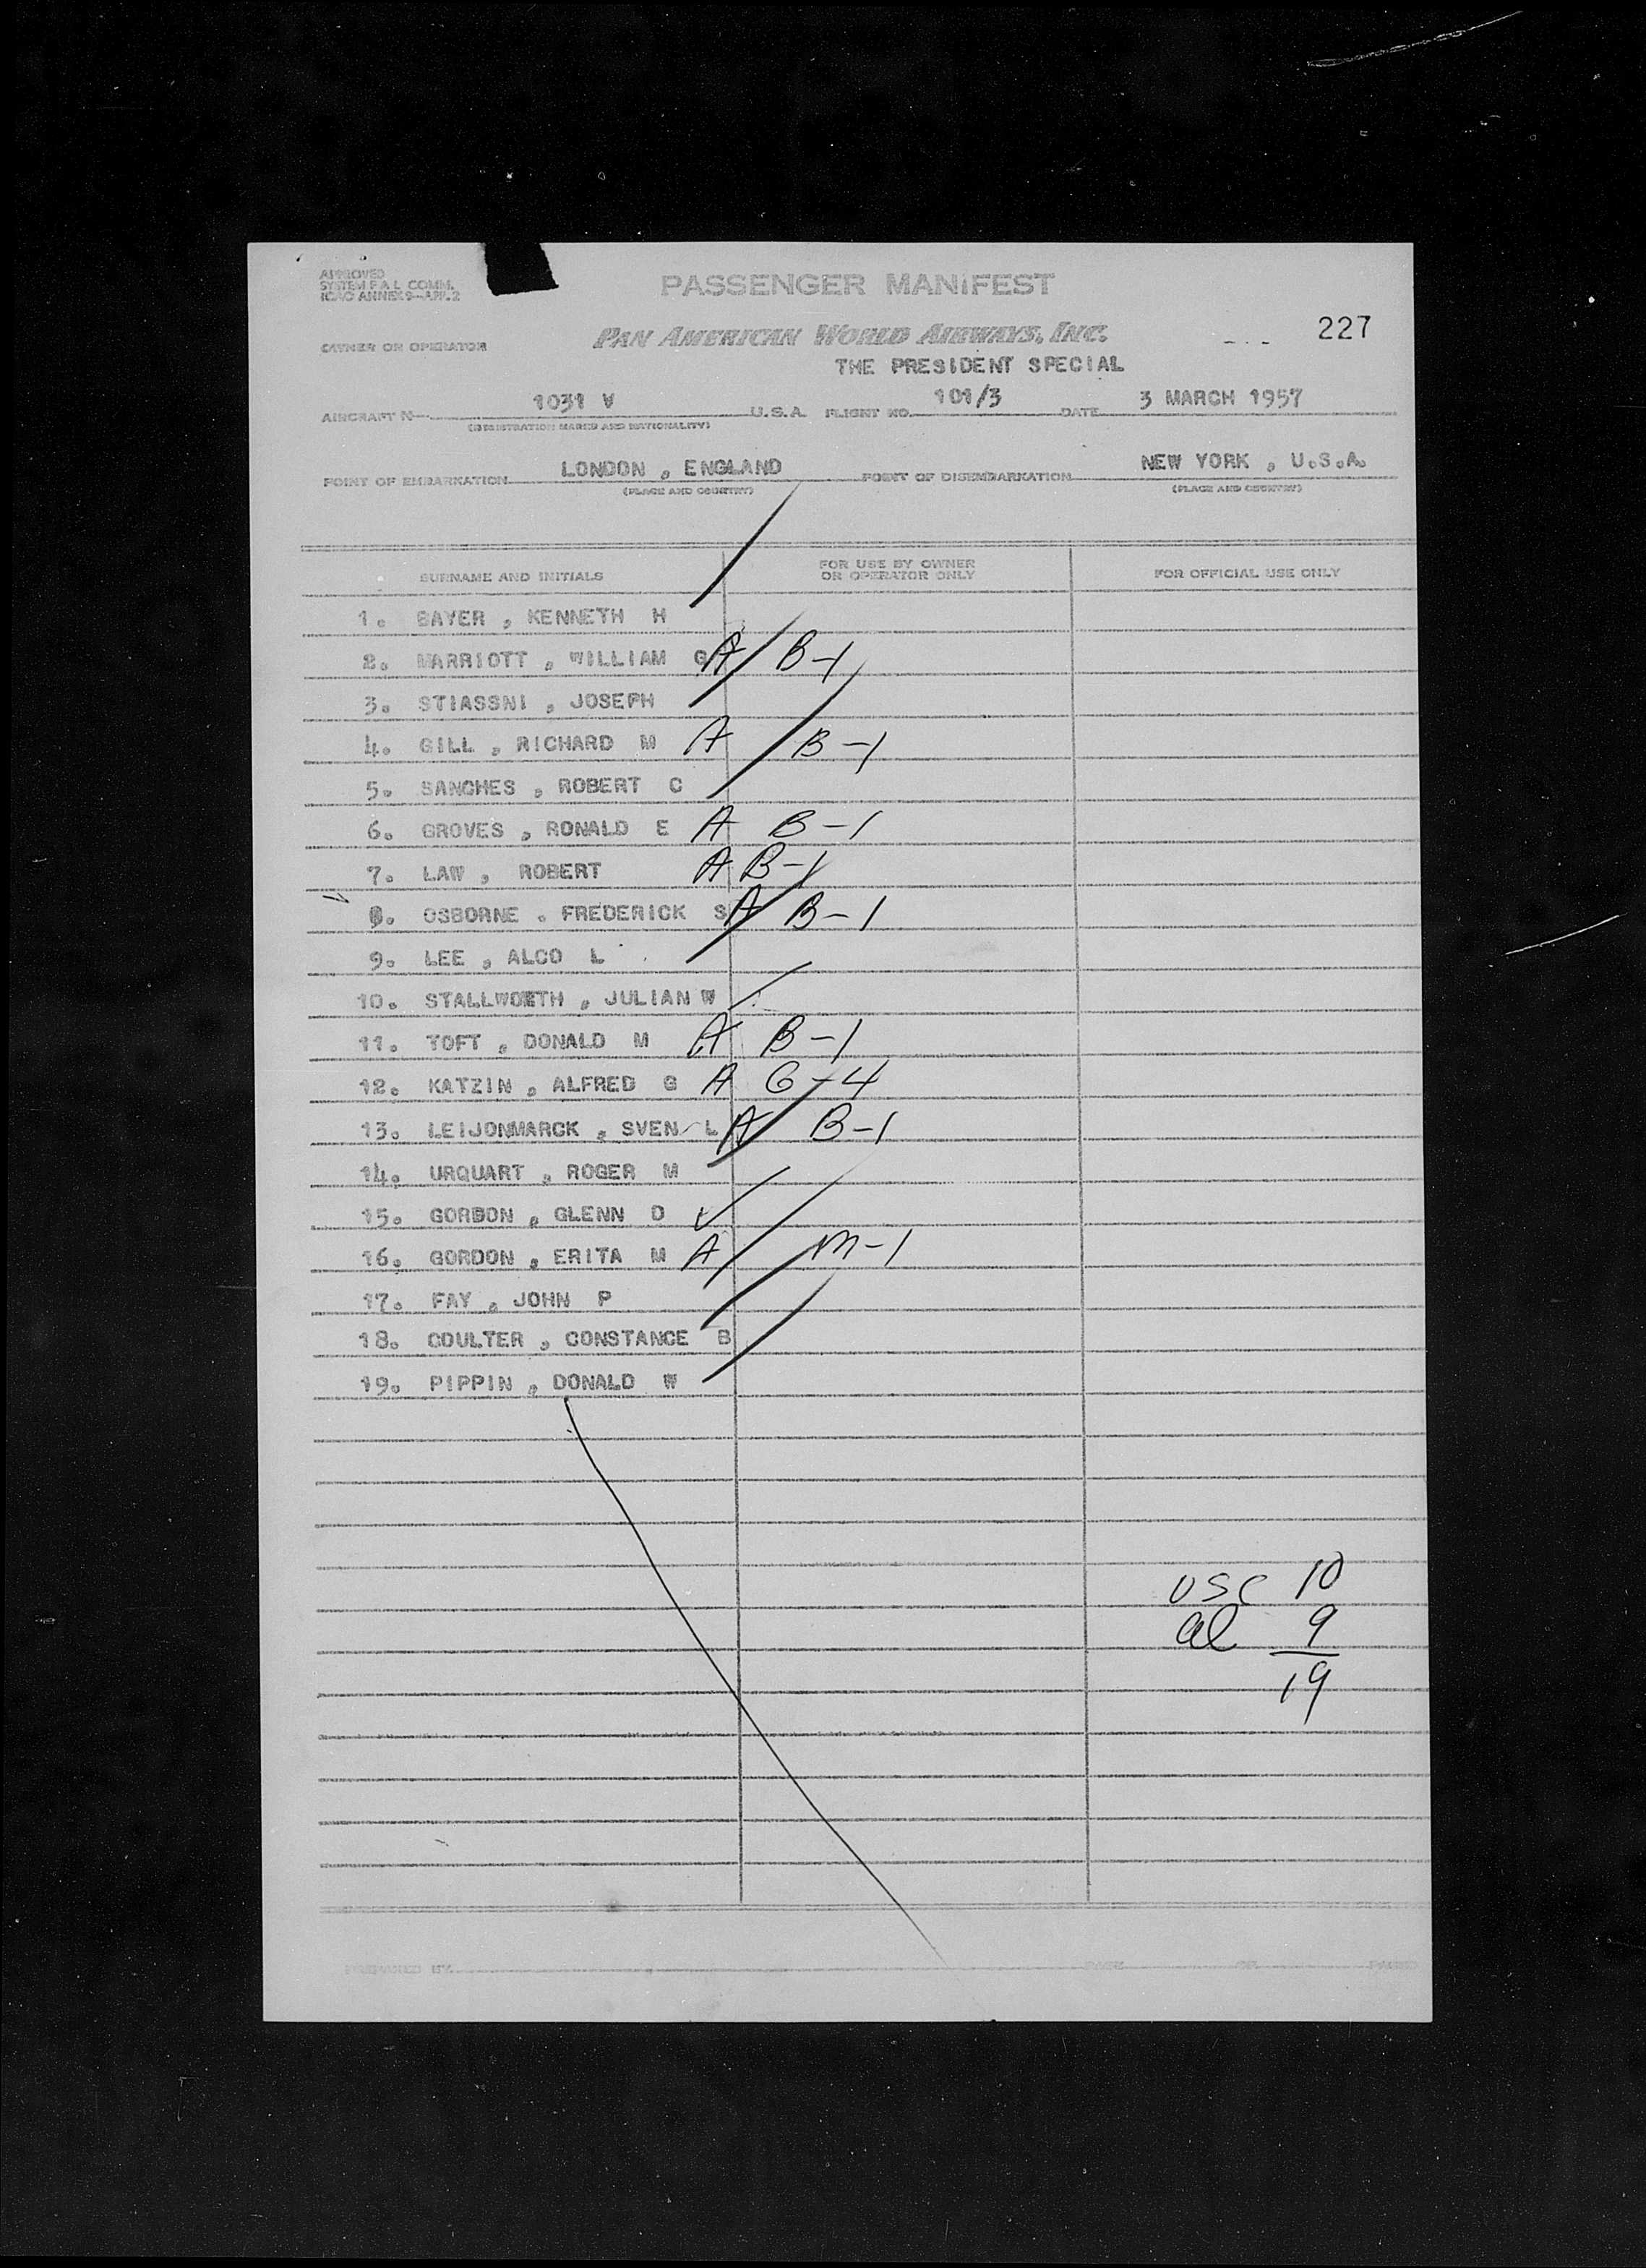 APPROVED
SYSTEM F.A.L. COMM.
ICAO ANNEX 9—APP. 2
PASSENGER MANIFEST
227
OWNER OR OPERATOR PAN AMERICAN WORLD AIRWAYS, INC.
THE PRESIDENT SPECIAL
AIRCRAFT N— 1031 V U.S.A. FLIGHT NO. 101/3 DATE 3 MARCH 1957
(REGISTRATION MARKS AND NATIONALITY)
POINT OF EMBARKATION LONDON , ENGLAND POINT OF DISEMBARKATION NEW YORK , U.S.A.
(PLACE AND COUNTRY) (PLACE AND COUNTRY)
SURNAME AND INITIALS FOR USE BY OWNER OR OPERATOR ONLY FOR OFFICIAL USE ONLY
1. BAYER , KENNETH H
2. MARRIOTT , WILLIAM G A B-1
3. STIASSNI , JOSEPH
4. GILL , RICHARD M A B-1
5. SANCHES , ROBERT C
6. GROVES , RONALD E A B-1
7. LAW , ROBERT A B-1
8. OSBORNE . FREDERICK S A B-1
9. LEE , ALCO L
10. STALLWORTH , JULIAN W
11. TOFT , DONALD M A B-1
12. KATZIN , ALFRED G A G-4
13. LEIJONMARCK , SVEN L A B-1
14. URQUART , ROGER M
15. GORDON , GLENN D
16. GORDON , ERITA M A M-1
17. FAY , JOHN P
18. COULTER , CONSTANCE B
19. PIPPIN , DONALD W
USC 10
al 9
19
PREPARED BY PAGE OF PAGES